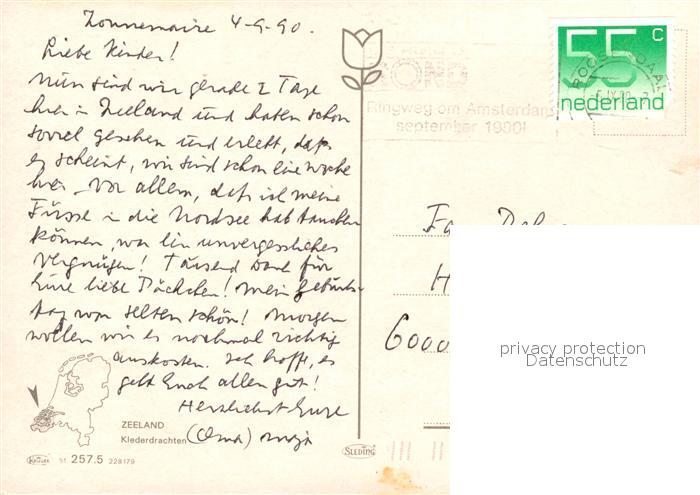 Zonnemaire 4-9-90.
Liebe Kinder!
Nun sind wir gerade 2 Tage
hier in Zeeland und haben schon
soviel gesehen und erlebt, daß
es scheint, wir sind schon eine Woche
hier – vor allem, daß ich meine
Füsse in die Nordsee hab tauchen
können, war ein unvergessliches
Vergnügen! Tausend Dank für
Eure liebe Päckchen! Mein Geburts-
tag war selten schön! Morgen
wollen wir es nochmal richtig
auskosten. Ich hoffe, es
geht Euch allen gut!
Herzlichst Eure
(Oma)
ZEELAND
Klederdrachten
51 257.5 228179
SLEDING
ROND
Ringweg om Amsterdam
september 1990!
55 c
nederland
ROOSENDAAL
Fa
H
6000
privacy protection
Datenschutz